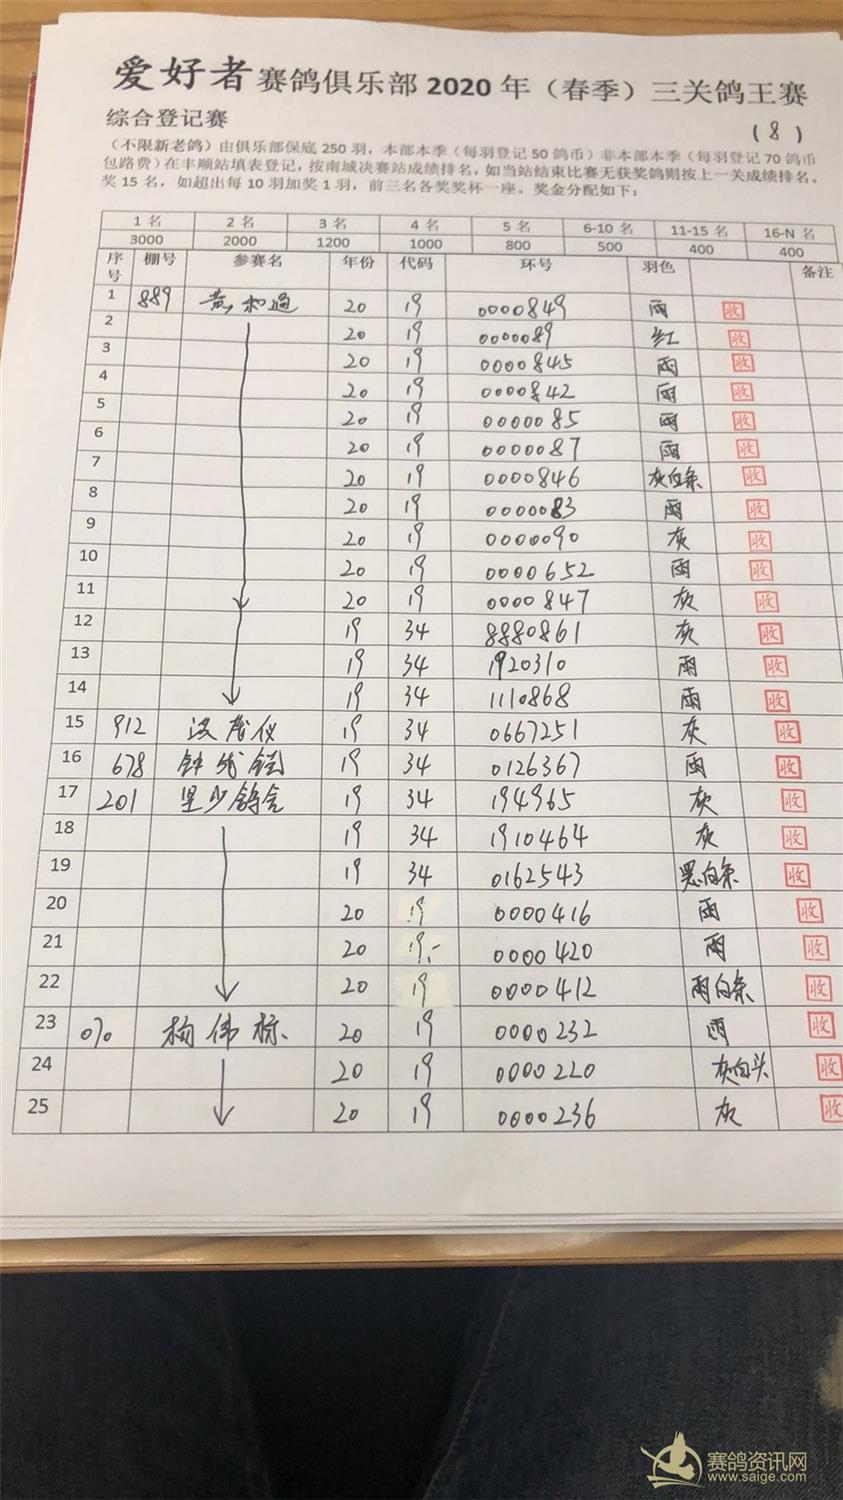 爱好者赛鸽俱乐部2020年（春季）三关鸽王赛
综合登记赛
(8)
（不限新老鸽）由俱乐部保底250羽，本部本季（每羽登记50鸽币）非本部本季（每羽登记70鸽币
包路费）在丰顺站填表登记，按南城决赛站成绩排名，如当站结束比赛无获奖鸽则按上一关成绩排名。
奖15名，如超出每10羽加奖1羽，前三名各奖奖杯一座。奖金分配如下：
1名 2名 3名 4名 5名 6-10名 11-15名 16-N名
3000 2000 1200 1000 800 500 400 400
序号 棚号 参赛名 年份 代码 环号 羽色 备注
1 889 黄和通 20 19 0000849 雨 收
2 20 19 0000089 红 收
3 20 19 0000845 雨 收
4 20 19 0000842 雨 收
5 20 19 0000085 雨 收
6 20 19 0000087 雨 收
7 20 19 0000846 灰白条 收
8 20 19 0000083 雨 收
9 20 19 0000090 灰 收
10 20 19 0000652 雨 收
11 20 19 0000847 灰 收
12 19 34 8880861 灰 收
13 19 34 1920310 雨 收
14 19 34 1110868 雨 收
15 912 仪 19 34 0667251 灰 收
16 678 钟 19 34 0126367 雨 收
17 201 坚少鸽舍 19 34 194965 灰 收
18 19 34 1910464 灰 收
19 19 34 0162543 黑白条 收
20 20 19 0000416 雨 收
21 20 19 0000420 雨 收
22 20 19 0000412 雨白条 收
23 010 杨伟标 20 19 0000232 雨 收
24 20 19 0000220 灰白头 收
25 20 19 0000236 灰 收
赛鸽资讯网
www.saige.com